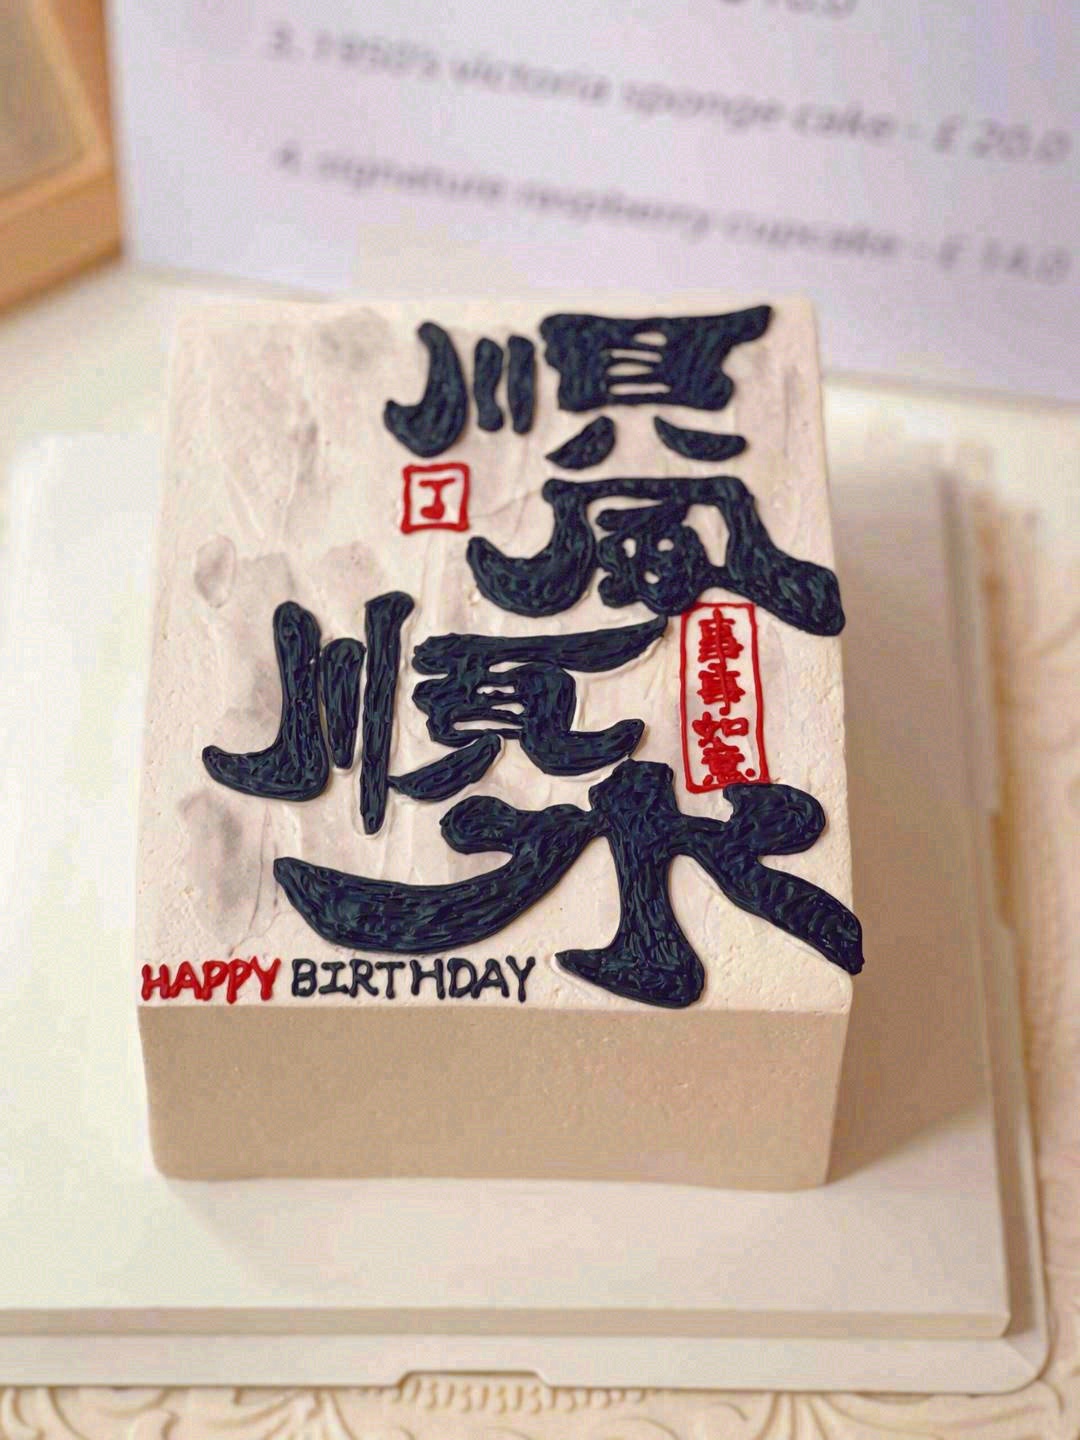 3. 1950's victoria sponge cake - £ 20.0
4. signature raspberry cupcake - £ 14.0
順風
順水
丁
事事如意
HAPPY BIRTHDAY